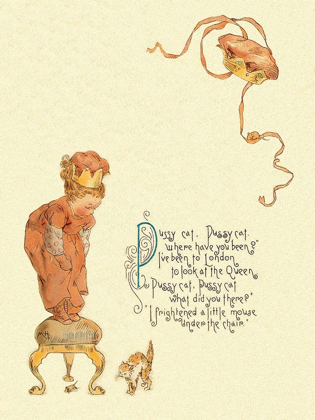 Pussy cat. Pussy cat.
where have you been?"
I've been to London
to look at the Queen
Pussy cat, pussy cat
what did you there?"
"I frightened a little mouse
under the chair"